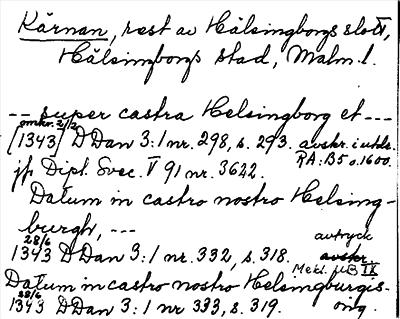 Kärnan, rest av Hälsingborgs slott,
Hälsingborgs stad, Malm. l.
-- super castra Helsingborg et ---
omkr. 2/2
[1343] DDan 3:1 nr. 298, s. 293. avskr. i utdr.
RA: B5 o. 1600.
jfr Dipl. Svec. V 91 nr. 3622.
Datum in castro nostro Helsing-
burgh, ---
28/6
1343 DDan 3:1 nr. 332, s. 318.
avtryck
Mekl. UB IX
Datum in castro nostro Helsingburgis-
28/6
1343 DDan 3:1 nr 333, s. 319.
orig.